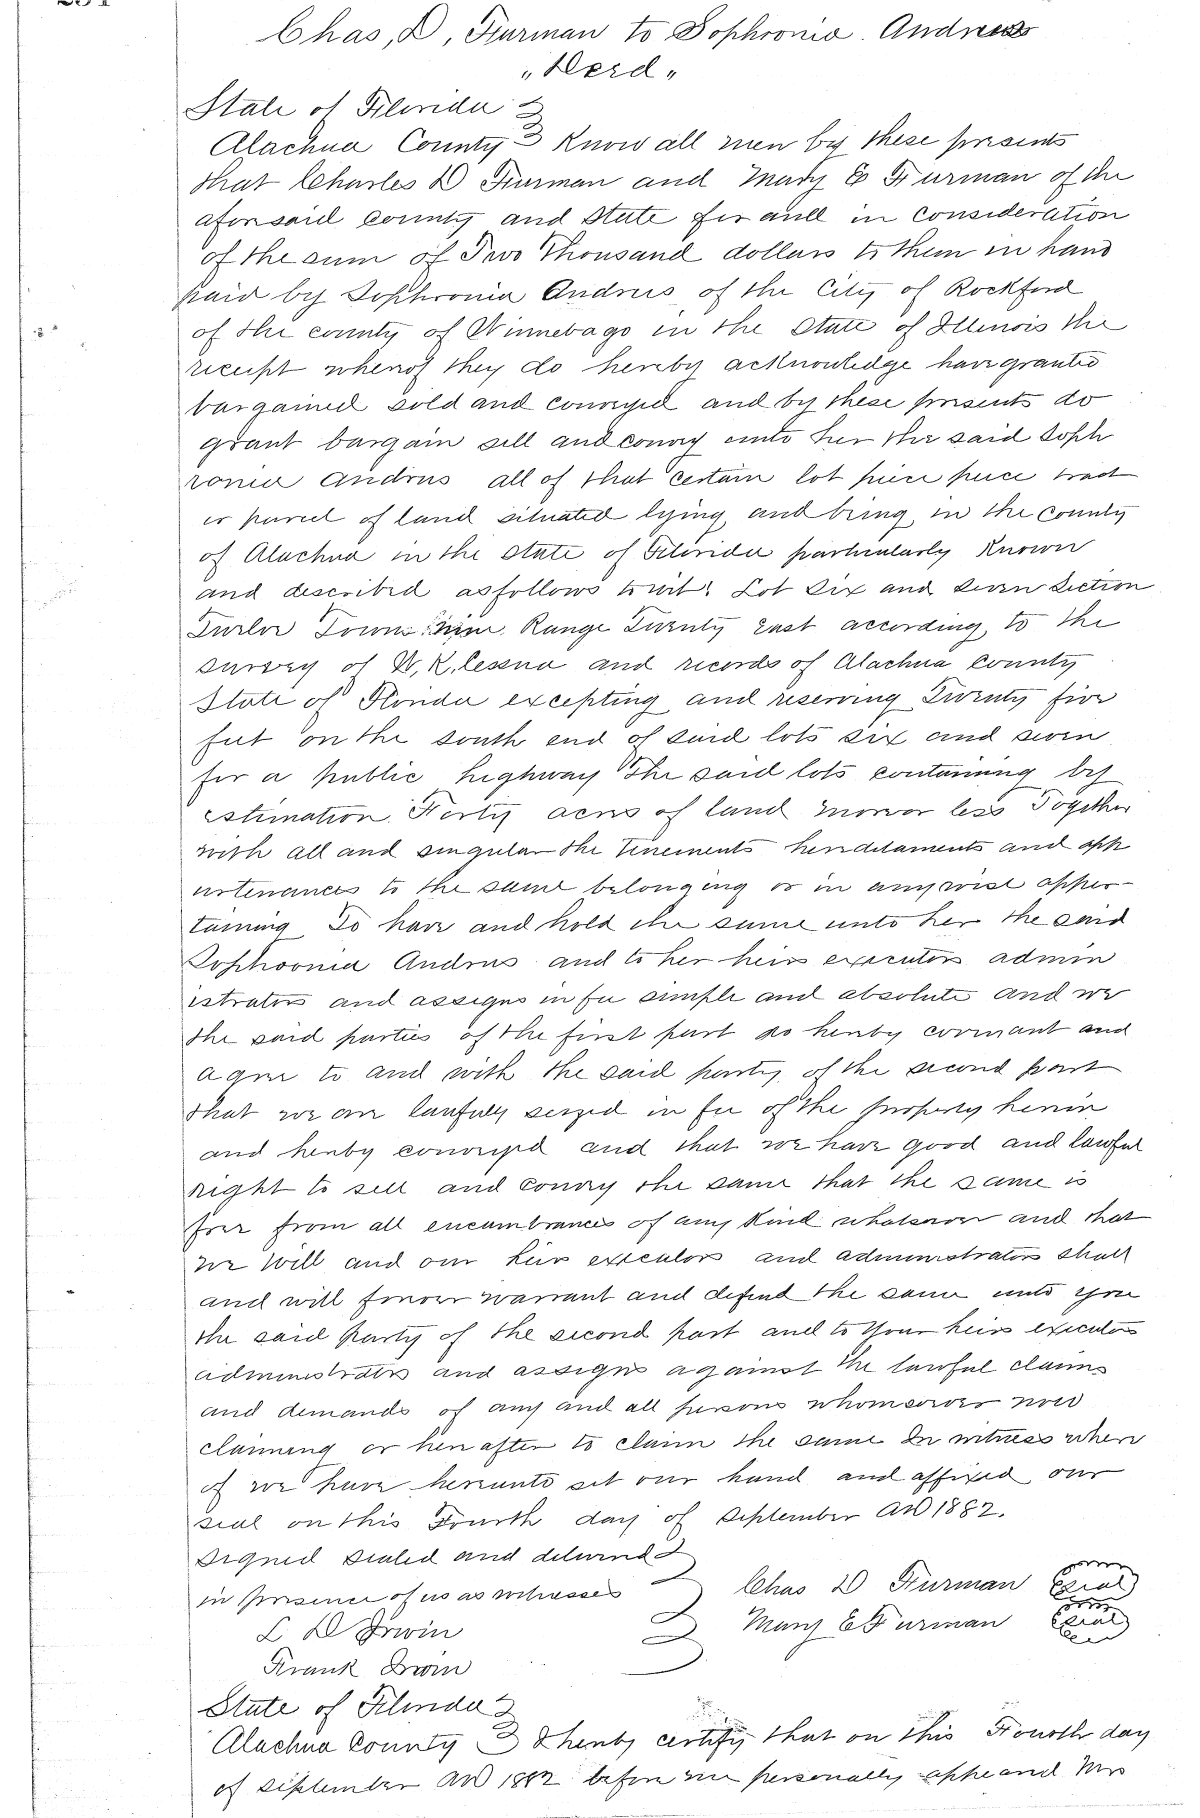 Chas, D, Furman to Sophronia. Andrus
"Deed"
State of Florida
Alachua County Know all men by these presents
that Charles D Furman and Mary E Furman of the
aforesaid county and State for and in consideration
of the sum of Two Thousand dollars to them in hand
paid by Sophronia Andrus of the City of Rockford
of the county of Winnebago in the State of Illinois the
receipt whereof they do hereby acknowledge have granted
bargained sold and conveyed and by these presents do
grant bargain sell and convey unto her the said Soph
ronia Andrus all of that certain lot piece piece tract
or parcel of land situated lying and being in the county
of Alachua in the state of Florida particularly Known
and described as follows towit: Lot Six and Seven Section
Twelve Town Nine Range Twenty East according to the
survey of W. K. Cessna and records of Alachua County
State of Florida excepting and reserving Twenty five
feet on the south end of said lots six and seven
for a public highway The said lots containing by
estimation Forty acres of land more or less Together
with all and singular the tenements hereditaments and app
urtenances to the same belonging or in anywise apper-
taining To have and hold the same unto her the said
Sophronia Andrus and to her heirs executors admin
istrators and assigns in fee simple and absolute and we
the said parties of the first part do hereby covenant and
agree to and with the said party of the second part
that we are lawfuly seized in fee of the property herein
and hereby conveyed and that we have good and lawful
right to sell and convey the same that the same is
free from all encumbrances of any Kind whatsoever and that
we will and our heirs executors and administrators shall
and will forever warrant and defend the same unto you
the said party of the second part and to your heirs executors
administrators and assigns against the lawful claims
and demands of any and all persons whomsoever now
claiming or hereafter to claim the same In witness where
of we have hereunto set our hand and affixed our
seal on this Fourth day of September AD 1882.
Signed Sealed and delivered
in presence of us as witnesses Chas D Furman Seal
L D Irwin Mary E Furman Seal
Frank Irwin
State of Florida
Alachua County I hereby certify that on this Fourth day
of September AD 1882 before me personally appeared Mrs